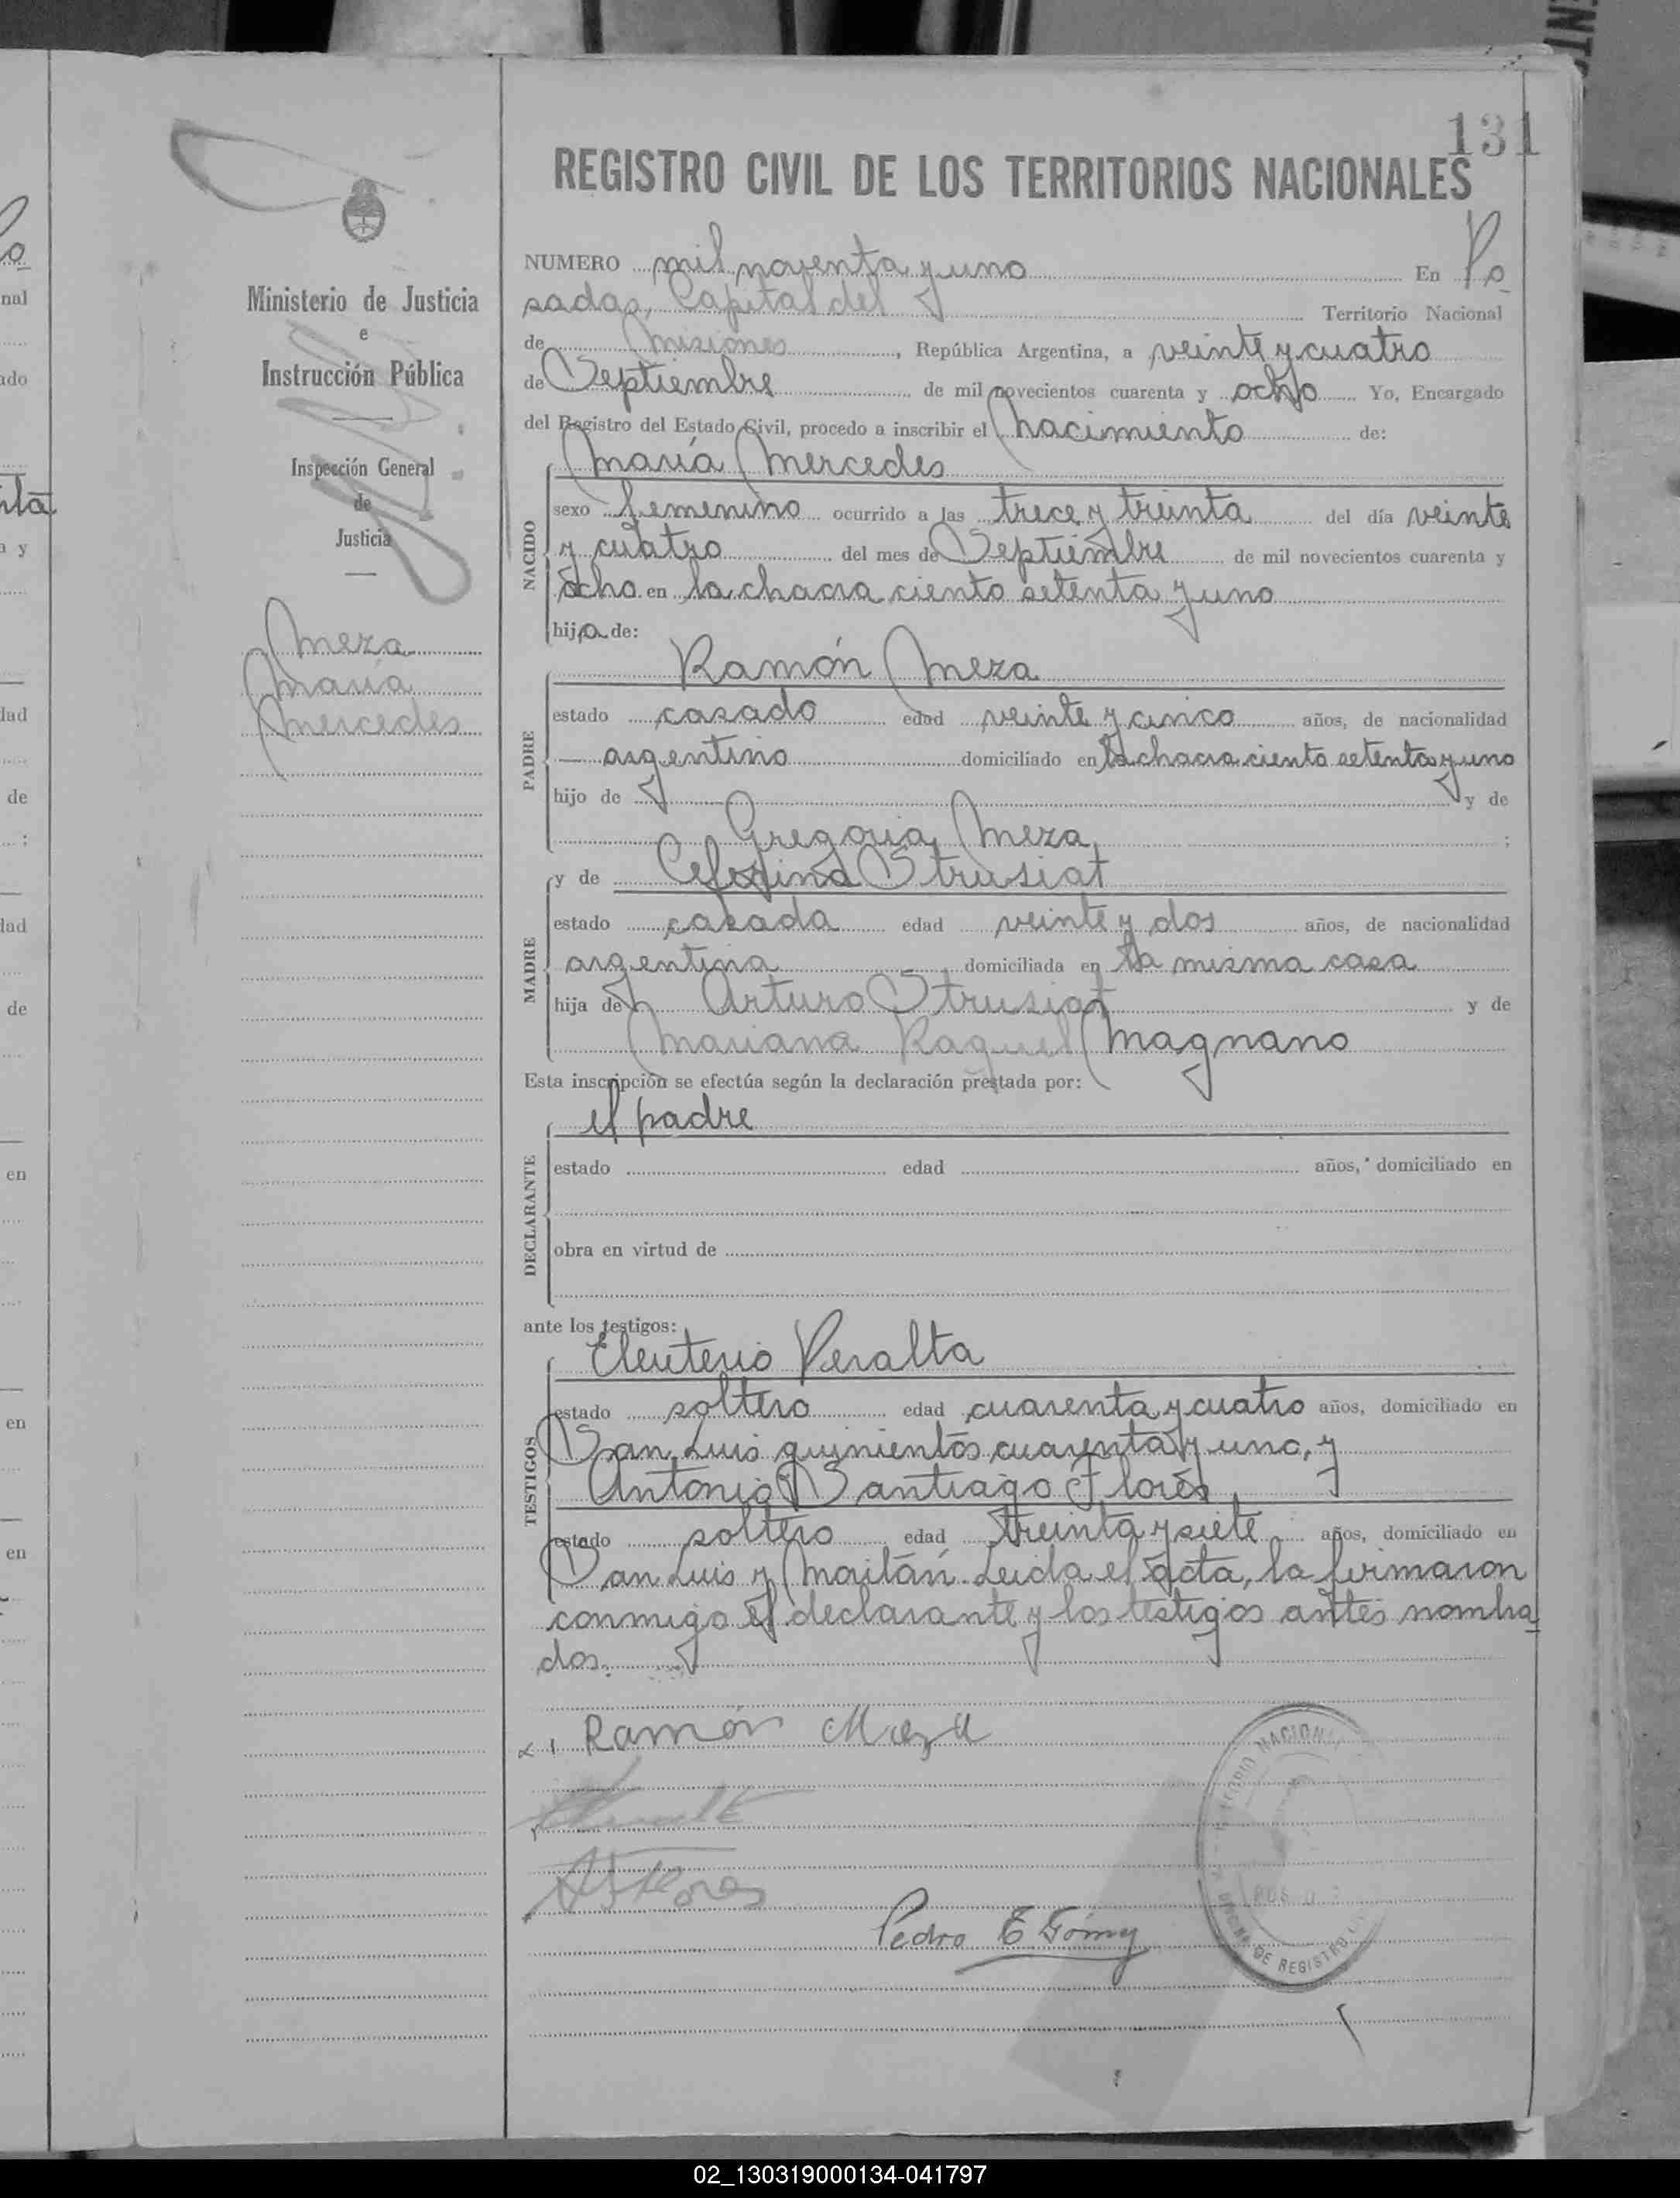 131
REGISTRO CIVIL DE LOS TERRITORIOS NACIONALES
Ministerio de Justicia
e
Instrucción Pública
Inspección General
de
Justicia
Meza
María
Mercedes
NUMERO mil noventa y uno En Po
sadas, Capital del Territorio Nacional
de Misiones, República Argentina, a veinte y cuatro
de Septiembre de mil novecientos cuarenta y ocho Yo, Encargado
del Registro del Estado Civil, procedo a inscribir el Nacimiento de:
María Mercedes
NACIDO
sexo femenino ocurrido a las trece y treinta del día veinte
y cuatro del mes de Septiembre de mil novecientos cuarenta y
ocho en la chacra ciento setenta y uno
hija de:
Ramón Meza
PADRE
estado casado edad veinte y cinco años, de nacionalidad
argentino domiciliado en la chacra ciento setenta y uno
hijo de y de
Gregoria Meza ;
y de Ceferina Strusiat
MADRE
estado casada edad veinte y dos años, de nacionalidad
argentina domiciliada en la misma casa
hija de Arturo Strusiat y de
Mariana Raquel Magnano
Esta inscripción se efectúa según la declaración prestada por:
el padre
DECLARANTE
estado edad años, domiciliado en
obra en virtud de
ante los testigos:
Eleuterio Peralta
TESTIGOS
estado soltero edad cuarenta y cuatro años, domiciliado en
San Luis quinientos cuarenta y uno, y
Antonio Santiago Flores
estado soltero edad treinta y siete años, domiciliado en
San Luis y Maitán. Leida el acta, la firmaron
conmigo el declarante y los testigos antes nombra
dos.
Ramón Meza
AS Flores
Pedro E Gómez
NACIONAL
DE REGISTRO
02_130319000134-041797